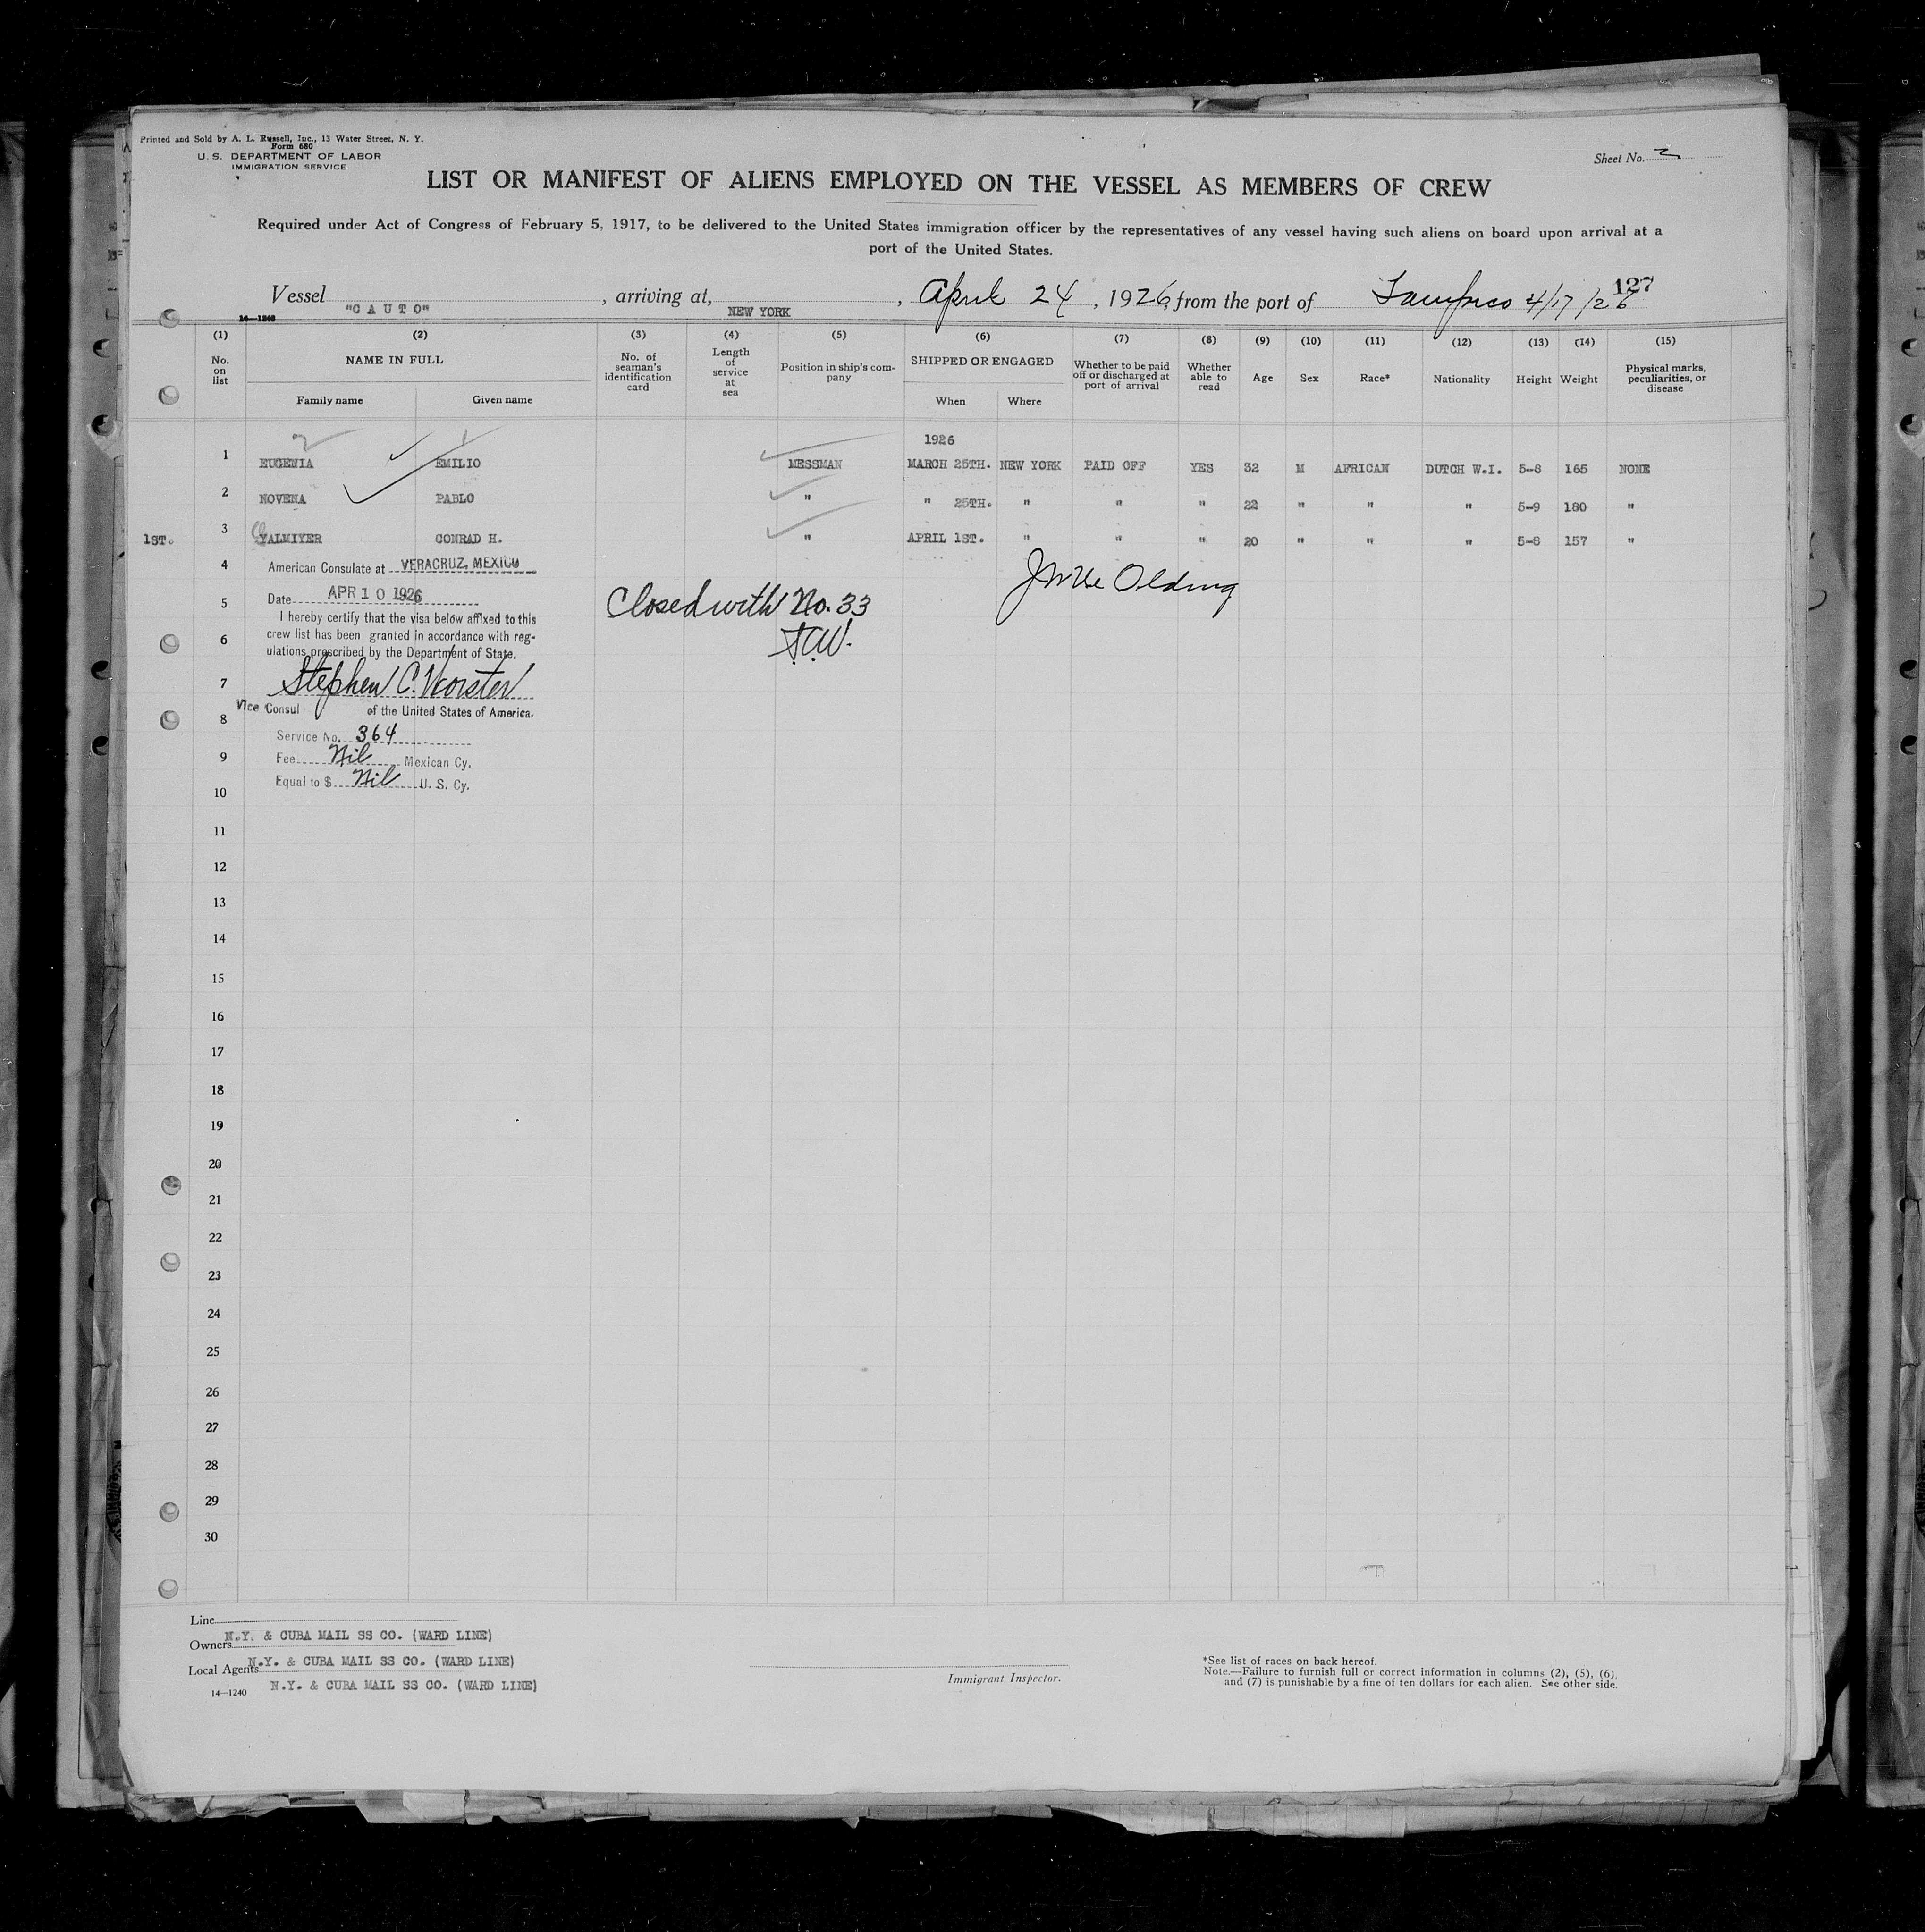 Printed and Sold by A. L. Russell, Inc., 13 Water Street, N. Y.
Form 680
U. S. DEPARTMENT OF LABOR
IMMIGRATION SERVICE
Sheet No. 2
LIST OR MANIFEST OF ALIENS EMPLOYED ON THE VESSEL AS MEMBERS OF CREW
Required under Act of Congress of February 5, 1917, to be delivered to the United States immigration officer by the representatives of any vessel having such aliens on board upon arrival at a
port of the United States.
127
Vessel "CAUTO", arriving at, NEW YORK, April 24, 1926, from the port of Tampico 4/17/26
14—1240
(1) (2) (3) (4) (5) (6) (7) (8) (9) (10) (11) (12) (13) (14) (15)
No. on list NAME IN FULL No. of seaman's identification card Length of service at sea Position in ship's company SHIPPED OR ENGAGED Whether to be paid off or discharged at port of arrival Whether able to read Age Sex Race* Nationality Height Weight Physical marks, peculiarities, or disease
Family name Given name When Where
1926
1 EUGENIA EMILIO MESSMAN MARCH 25TH. NEW YORK PAID OFF YES 32 M AFRICAN DUTCH W.I. 5-8 165 NONE
2 NOVENA PABLO " " 25TH. " " " 22 " " " 5-9 180 "
1ST. 3 VALMIYER CONRAD H. " APRIL 1ST. " " " 20 " " " 5-8 157 "
4 American Consulate at VERACRUZ, MEXICO
Date APR 10 1926
5 I hereby certify that the visa below affixed to this
6 crew list has been granted in accordance with reg-
ulations prescribed by the Department of State.
Closed with No. 33
Olding
7 Stephen C. Worster
8 Vice Consul of the United States of America.
Service No. 364
9 Fee Nil Mexican Cy.
Equal to $ Nil U. S. Cy.
10
11
12
13
14
15
16
17
18
19
20
21
22
23
24
25
26
27
28
29
30
Line N.Y. & CUBA MAIL SS CO. (WARD LINE)
Owners N.Y. & CUBA MAIL SS CO. (WARD LINE)
Local Agents N.Y. & CUBA MAIL SS CO. (WARD LINE)
14—1240
Immigrant Inspector.
*See list of races on back hereof.
Note.—Failure to furnish full or correct information in columns (2), (5), (6),
and (7) is punishable by a fine of ten dollars for each alien. See other side.